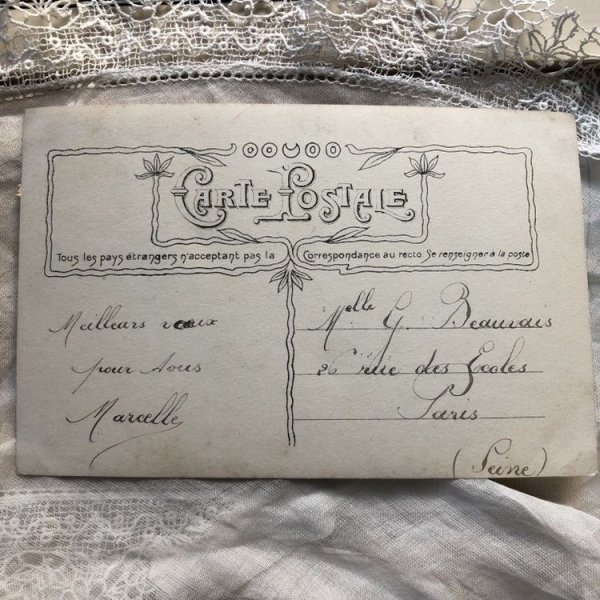 CARTE POSTALE
Tous les pays étrangers n'acceptant pas la Correspondance au recto Se renseigner à la poste
Meilleurs vœux
pour tous
Marcelle
Melle G. Beauvais
26 rue des Ecoles
Paris
(Seine)